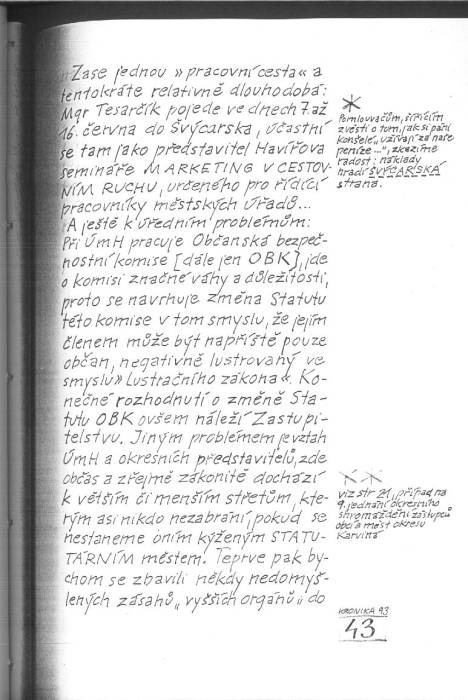 Zase jednou »pracovní cesta« a
tentokráte relativně dlouhodobá:
Mgr Tesarčík pojede ve dnech 7. až
16. června do Švýcarska, účastní
se tam jako představitel Havířova
semináře MARKETING V CESTOV-
NÍM RUCHU, určeného pro řídící
pracovníky městských úřadů...
A ještě k úředním problémům:
Při ÚmH pracuje Občanská bezpeč-
nostní komise [dále jen OBK], jde
o komisi značné váhy a důležitosti,
proto se navrhuje změna Statutu
této komise v tom smyslu, že jejím
členem může být napříště pouze
občan, negativně lustrovaný ve
smyslu »Lustračního zákona«. Ko-
nečné rozhodnutí o změně Sta-
tutu OBK ovšem náleží Zastupi-
telstvu. Jiným problémem je vztah
ÚmH a okresních představitelů, zde
občas a zřejmě zákonitě dochází
k větším či menším střetům, kte-
rým asi nikdo nezabrání, pokud se
nestaneme oním kýženým STATU-
TÁRNÍM městem. Teprve pak by-
chom se zbavili někdy nedomyš-
lených zásahů „vyšších orgánů" do
*
Pomlouvačům, šířícím
zvěsti o tom, jak si páni
konšelé „užívají za naše
peníze...", zkazíme
radost: náklady
hradí ŠVÝCARSKÁ
strana.
**
viz str 21, případ na
9. jednání okresního
shromáždění zástupců
obcí a měst okresu
Karviná
KRONIKA 93
43